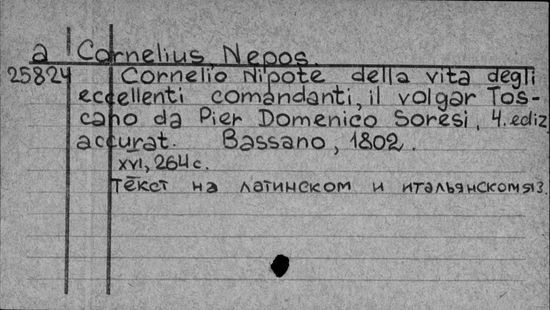 a Cornelius Nepos.
25824 Cornelio Nipote della vita degli
eccellenti comandanti, il volgar Tos-
cano da Pier Domenico Soresi, 4. ediz
accurat. Bassano, 1802.
XVI, 264 c.
Текст на латинском и итальянском яз.